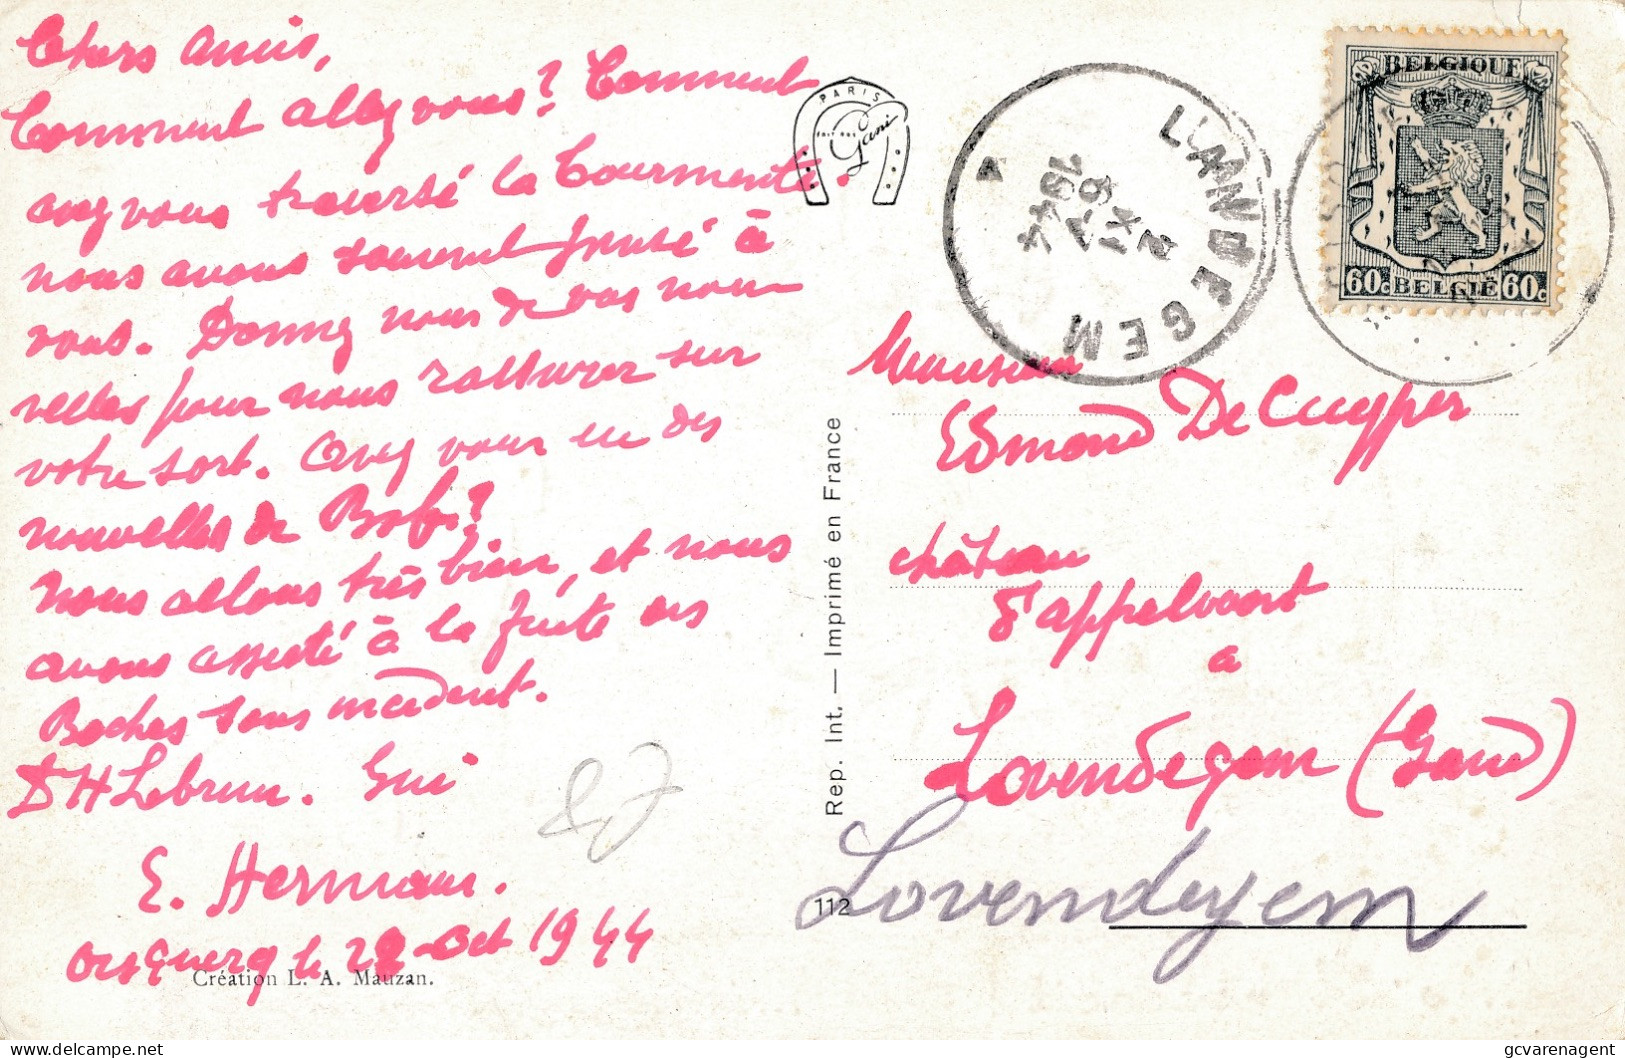 Chers amis,
Comment allez vous? Comment
avez vous traversé la tourmente.
nous avons souvent pensé à
vous. Donnez nous de vos nou
velles pour nous rassurer sur
votre sort. Avez vous eu des
nouvelles de Bob?
Nous allons très bien, et nous
avons assisté à la fuite des
Boches sans incident.
Dr H Lebrun. Gui
E. Hermans.
le 22 Oct 1944
Création L. A. Mauzan.
PARIS
ÉDIT PAR
Gani
Rep. Int. — Imprimé en France
112
LANDEGEM
2
XI
1944
BELGIQUE
60c BELGIË 60c
Monsieur
Edmond De Cuyper
château
d'appelvoort
a
Lovendegem (Gand)
Lovendegem
87
gcvarenagent
delcampe.net